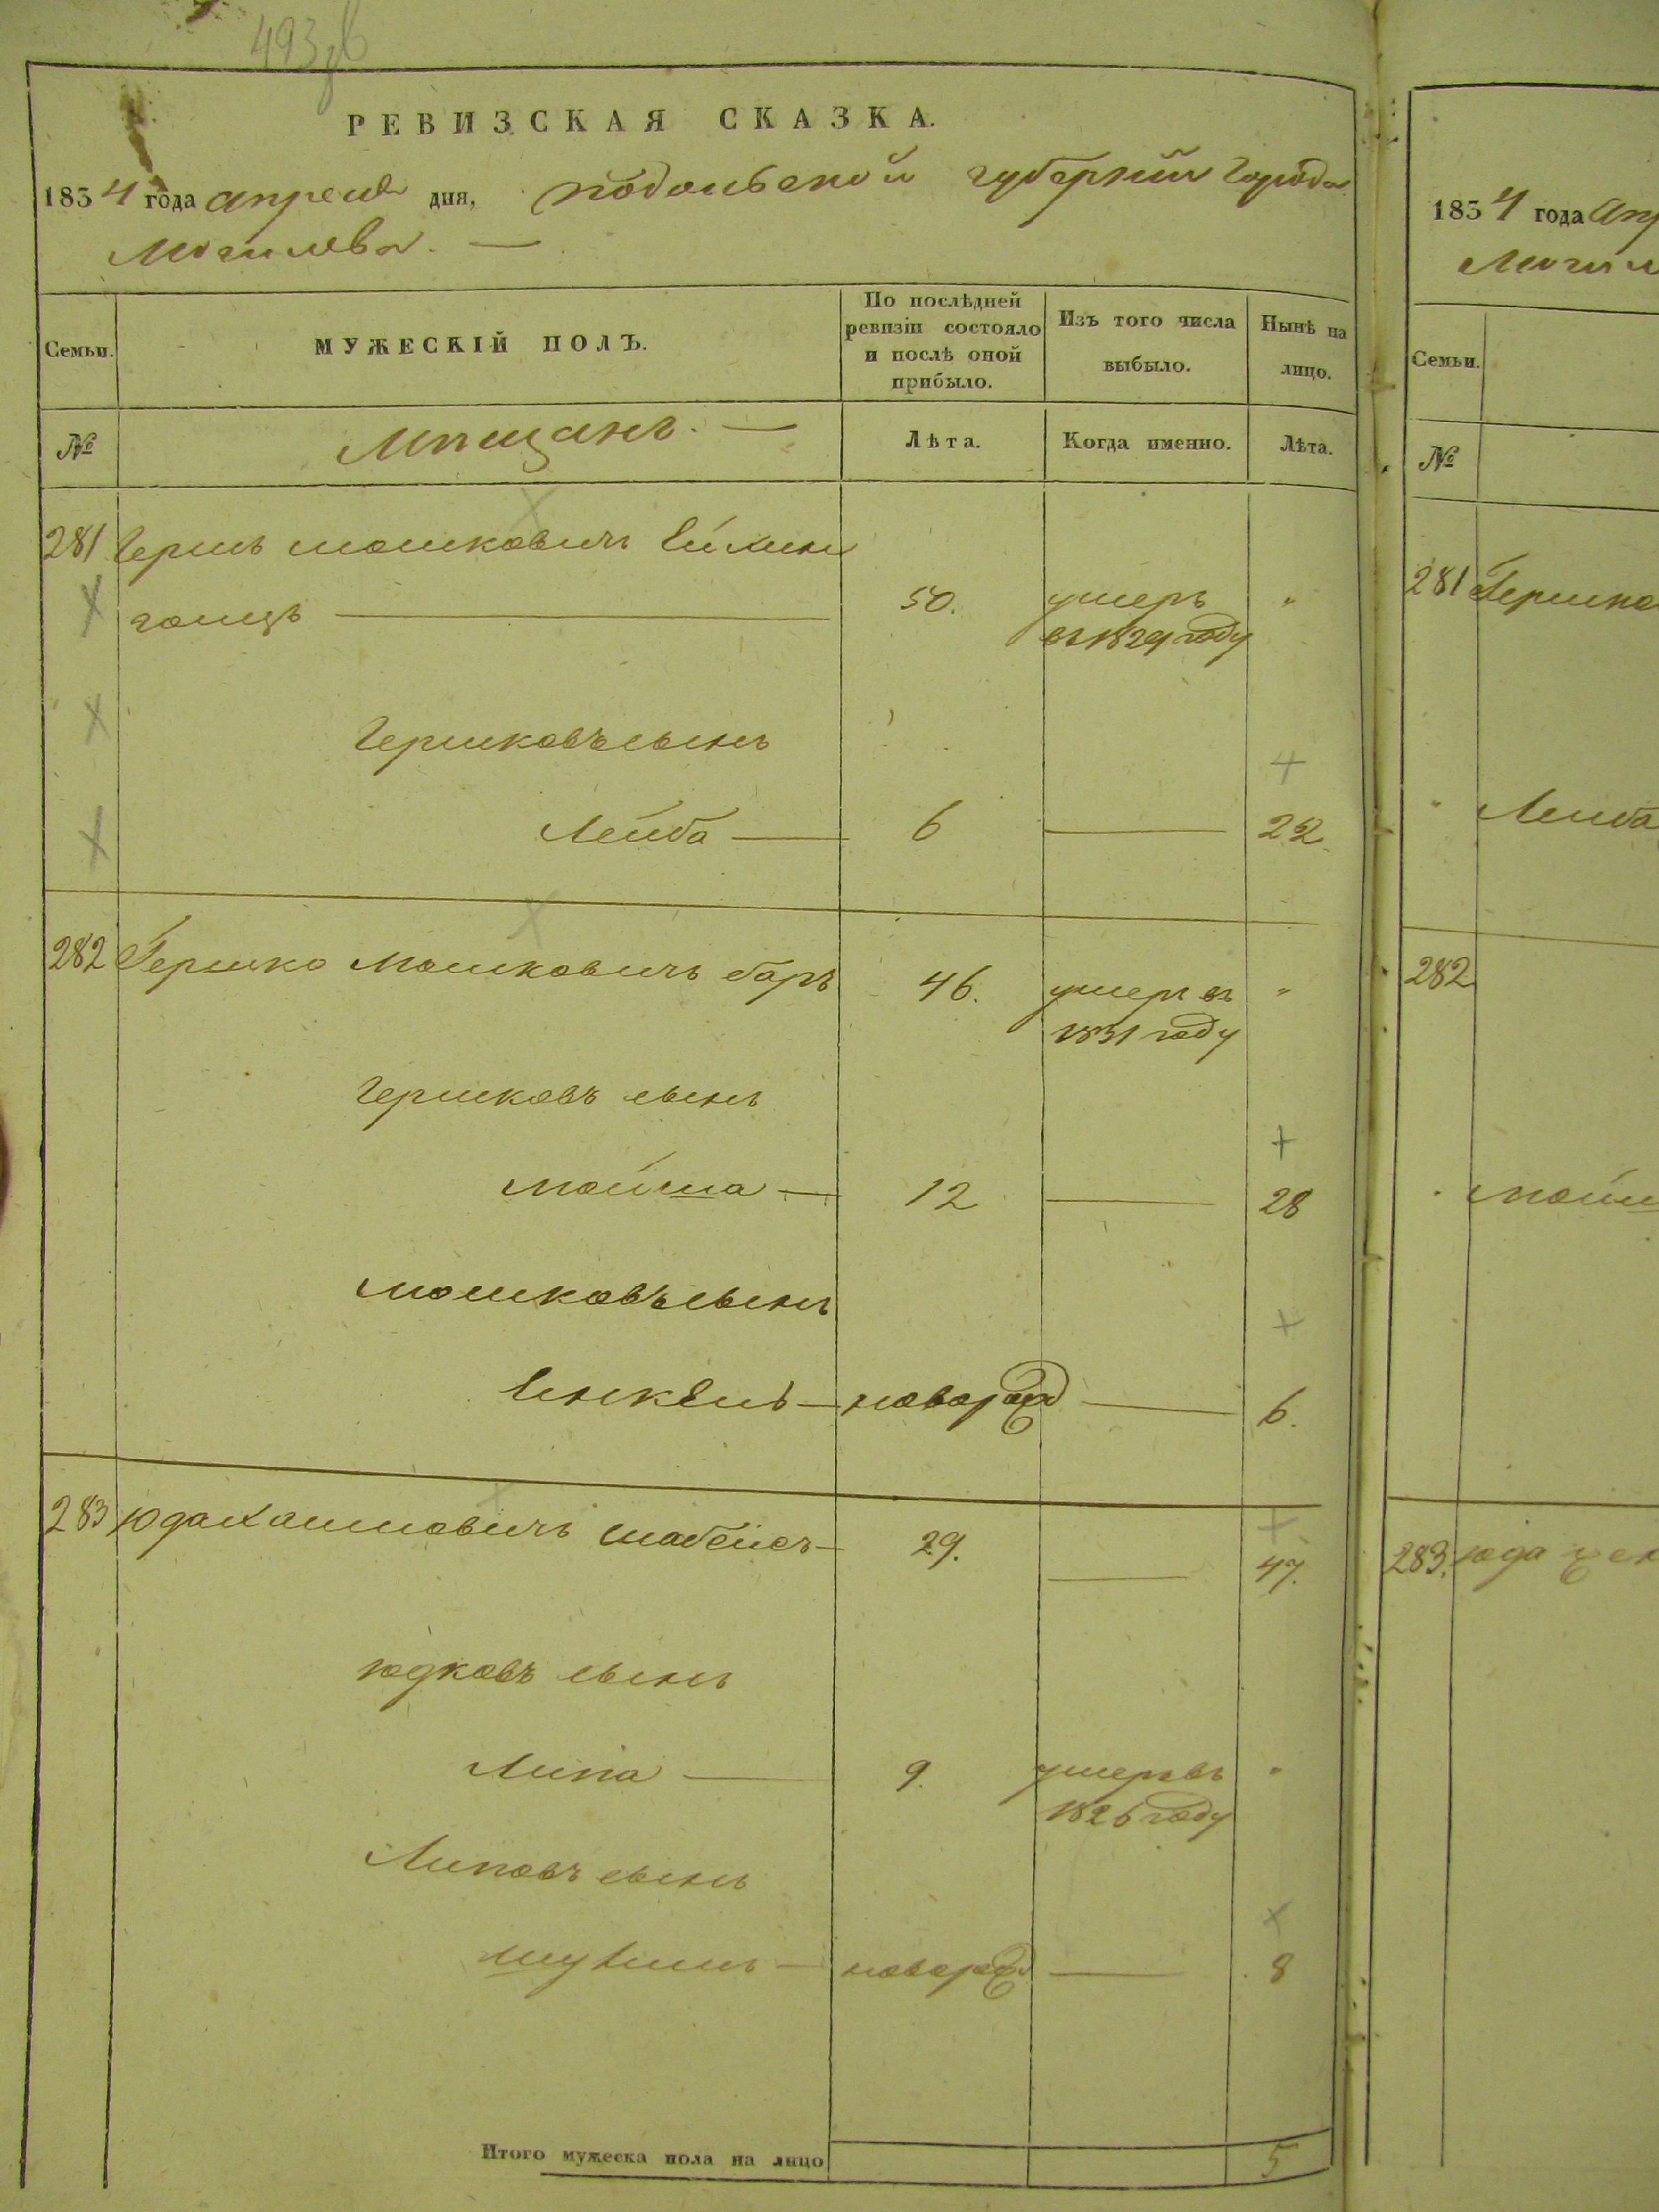 РЕВИЗСКАЯ СКАЗКА.
1834 года апреля дня, Подольской губернiи города
Могилева. —
Семьи.
МУЖЕСКIЙ ПОЛЪ.
По послѣдней ревизiи состояло и послѣ оной прибыло.
Изъ того числа выбыло.
Нынѣ на лицо.
№
Мѣщанъ. —
Лѣта.
Когда именно.
Лѣта.
281 Гершъ Мошковичъ
50. умеръ "
въ 1829 году
Гершковъ сынъ
Лейба — 6 — 22.
282 Гершко Мошковичъ Баръ 46. умеръ въ "
1831 году
Гершковъ сынъ
Мойша — 12 — 28
Мошковъ сынъ
Янкель — новорожд — 6.
283 Юда Хаимовичъ — 29. — 47.
Юдковъ сынъ
Липа — 9. умеръ въ "
1826 году
Липовъ сынъ
— новорожд — 8
Итого мужеска пола на лицо 5
1834 года Апр
Могил
Семьи.
№
281 Гершко
" Лейба
282
Мойш
283. Юда